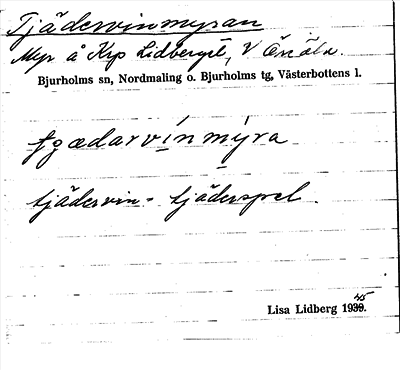 Tjädervinmyran
Myr å Krp Lidberget, V
Bjurholms sn, Nordmaling o. Bjurholms tg, Västerbottens l.
tjädervin = tjäderspel.
Lisa Lidberg 1945.